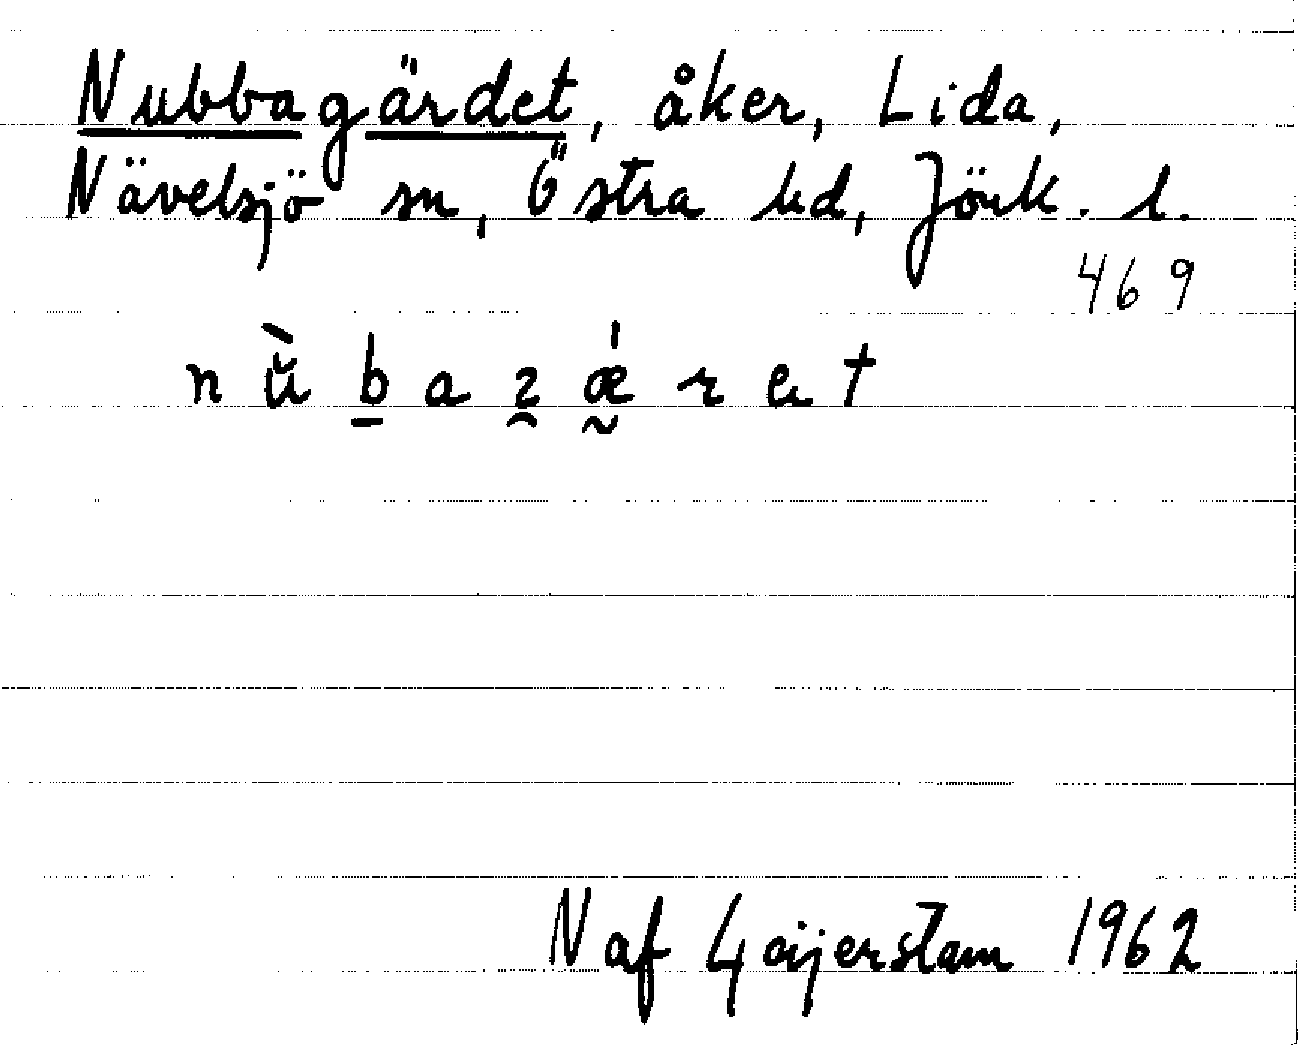 Nubbagärdet, åker, Lida,
Nävelsjö sn, Östra hd, Jönk. l.
469
N af Geijerstam 1962